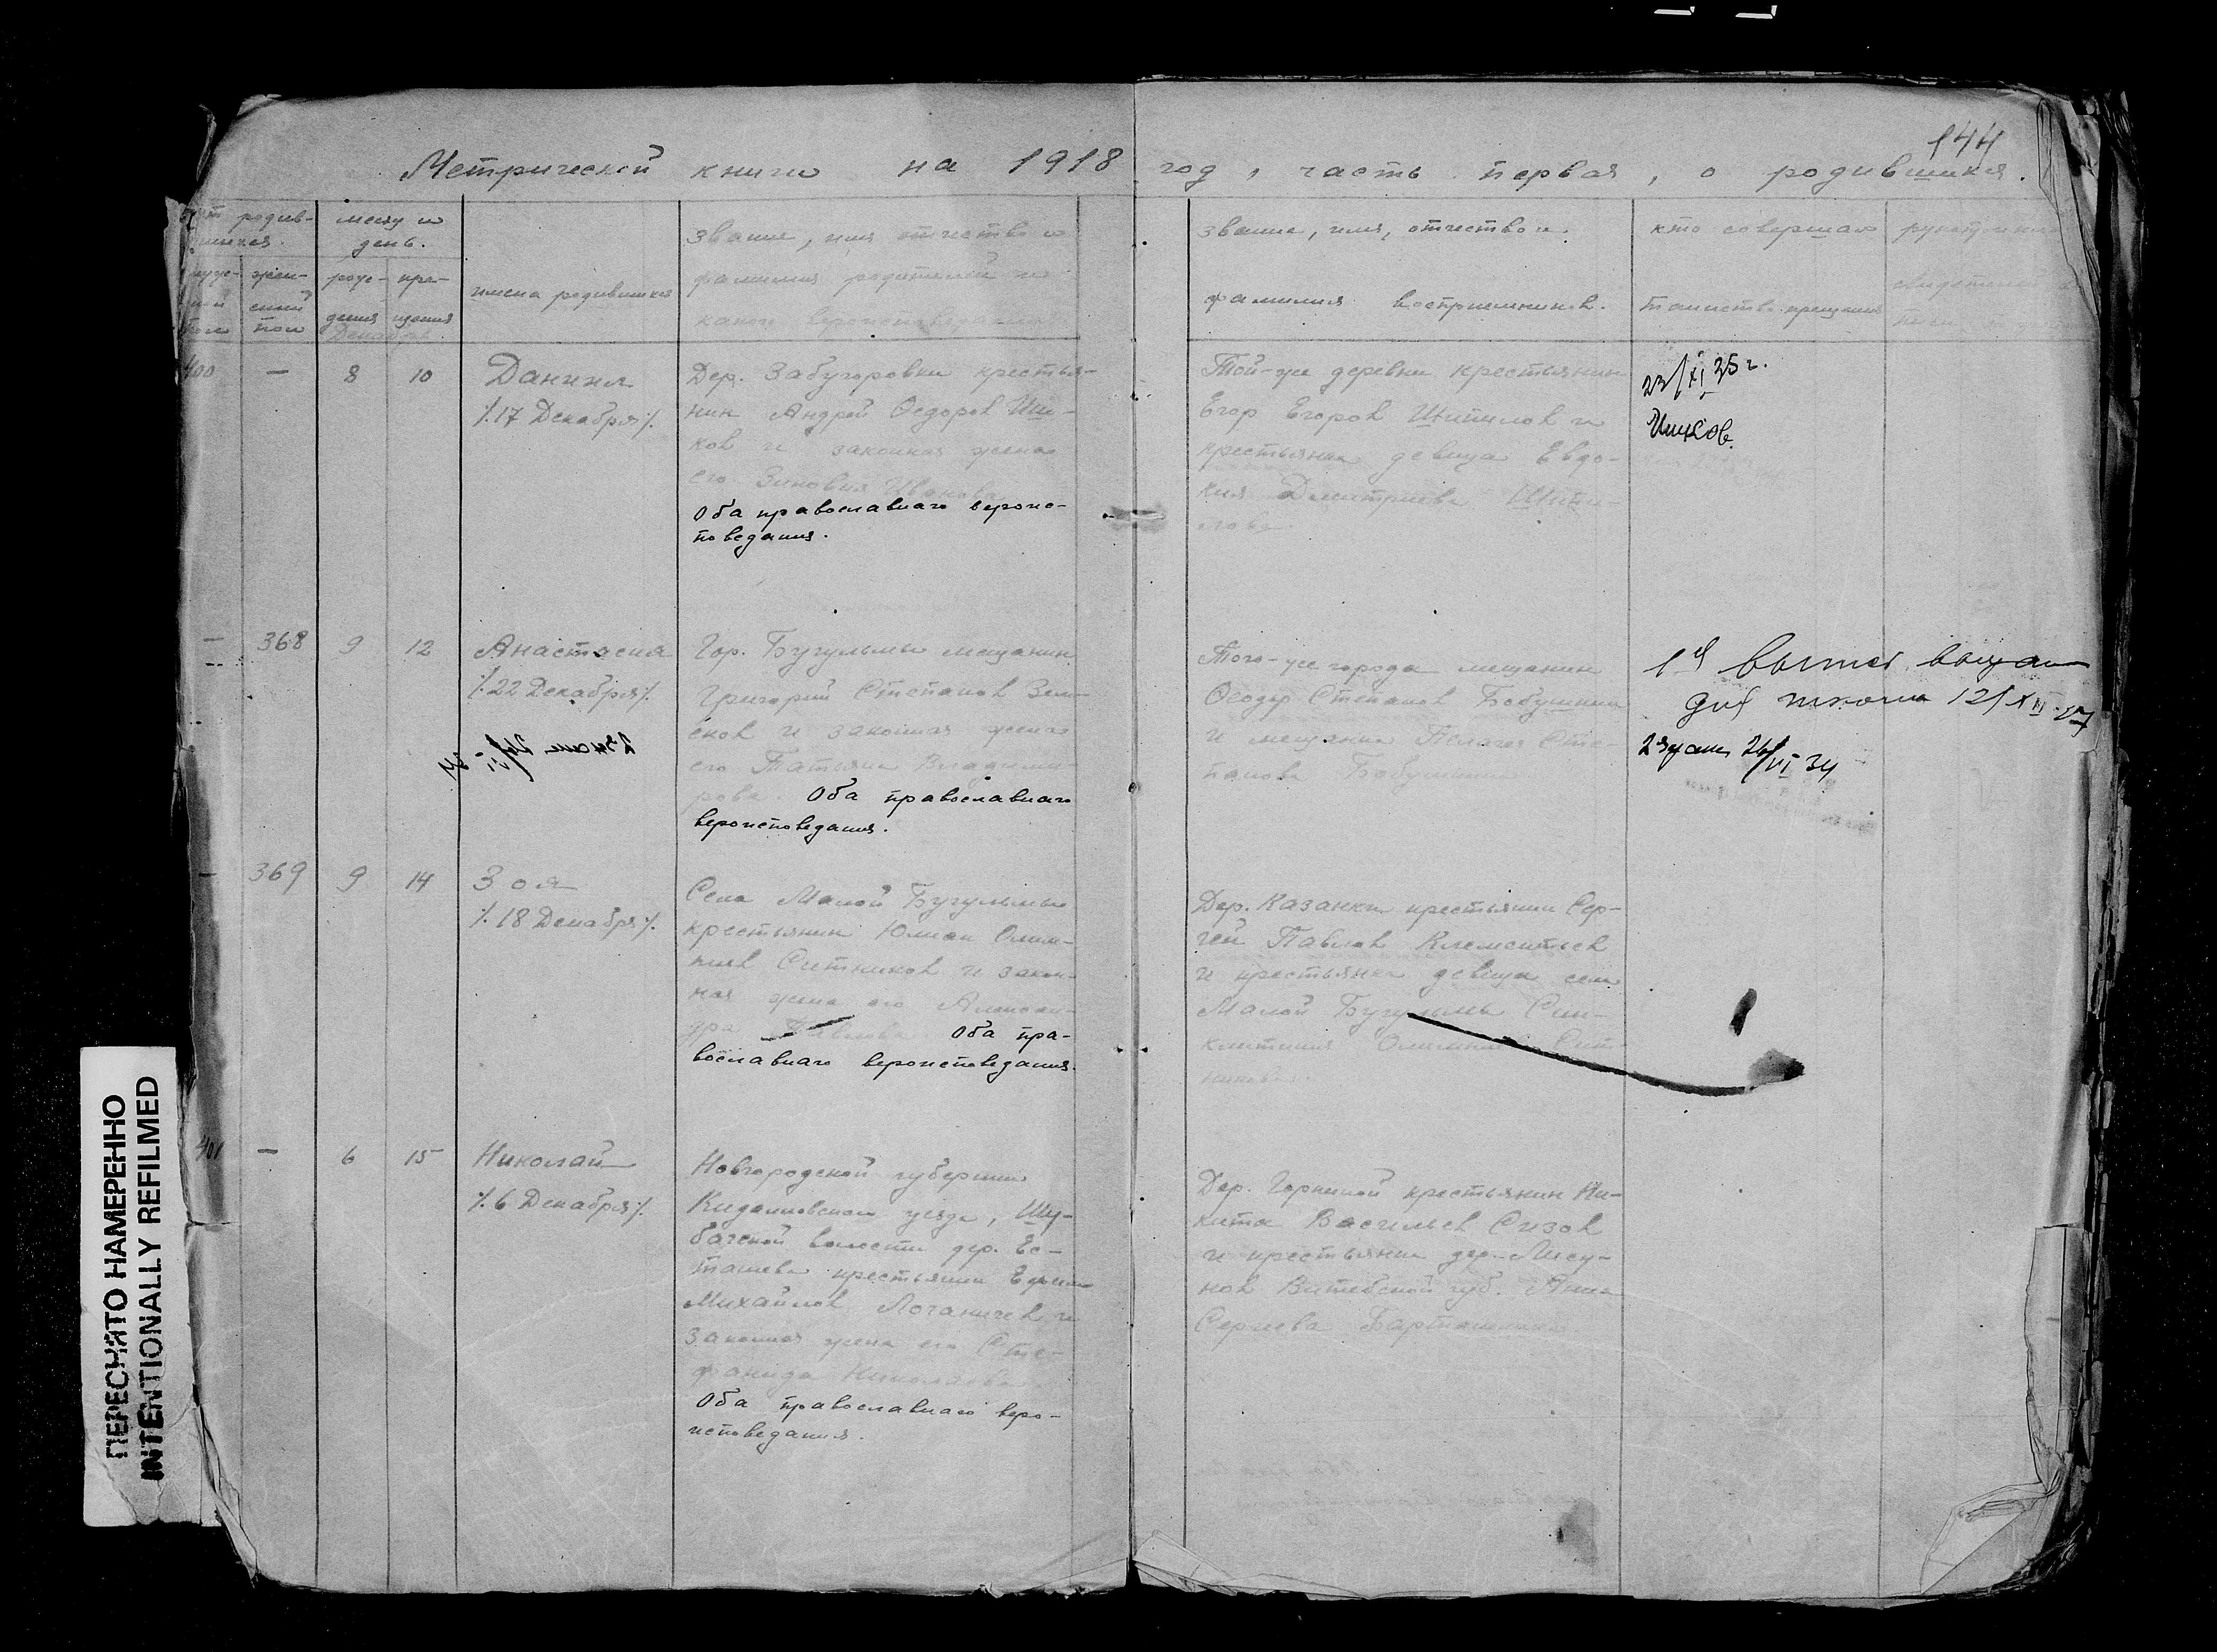 144
Метрической книги на 1918 год, часть первая, о родившихся.
родив-
шихся.
месяц и
день.
жен-
ский
пол
рож-
дения
кре-
щения
Декабрь
имена родившихся
звание, имя отчество и
фамилия родителей и
какого вероисповедания
звание, имя, отчество и
фамилия восприемников.
кто совершал
таинство крещения
400 — 8 10
Даниил
/.17 Декабря/.
Дер. Забугоровки крестья-
нин Андрей Феодоров Иш-
ков и законная жена
его Зиновия Иванова
Оба православнаго вероис-
поведания.
Той-же деревни крестьянин
Егор Егоров Шипилов и
крестьянка девица Евдо-
кия Димитриева Шипи-
лова.
23/XI 35 г.
Ишков.
— 368 9 12
Анастасия
/.22 Декабря/.
Гор. Бугульмы мещанин
Григорий Степанов Зен-
ков и законная жена
его Татьяна Владими-
рова. Оба православнаго
вероисповедания.
Того-же города мещанин
Феодор Степанов Бобушкин
и мещанка Пелагея Сте-
панова Бобушкина
12/XII 27
26/VI 34
— 369 9 14
Зоя
/.18 Декабря/.
Села Малой Бугульмы
крестьянин Юлиан Олим-
пиев Ситников и закон-
ная жена его Александ-
ра Павлова Оба пра-
вославнаго вероисповедания.
Дер. Казанки крестьянин Сер-
гей Павлов Клементьев
и крестьянка девица села
Малой Бугульмы Син-
клитикия Олимпиева Сит-
никова.
401 — 6 15
Николай
/.6 Декабря/.
Новгородской губернии
уезда, Шу-
бачской волости дер. Ес-
ташева крестьянин Ефим
Михайлов Логаничев и
законная жена его Сте-
фанида Николаева
Оба православнаго веро-
исповедания.
Дер. крестьянин Ни-
кита Васильев Сизов
и крестьянка дер. Лису-
нов Витебской губ. Анна
Сергиева
ПЕРЕСНЯТО НАМЕРЕННО
INTENTIONALLY REFILMED